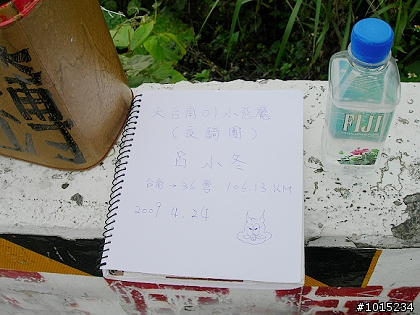 大台南01小惡魔
(夜騎團)
呂小冬
台南→36灣 106.13 KM
2009 4.24
FIJI
#1015234